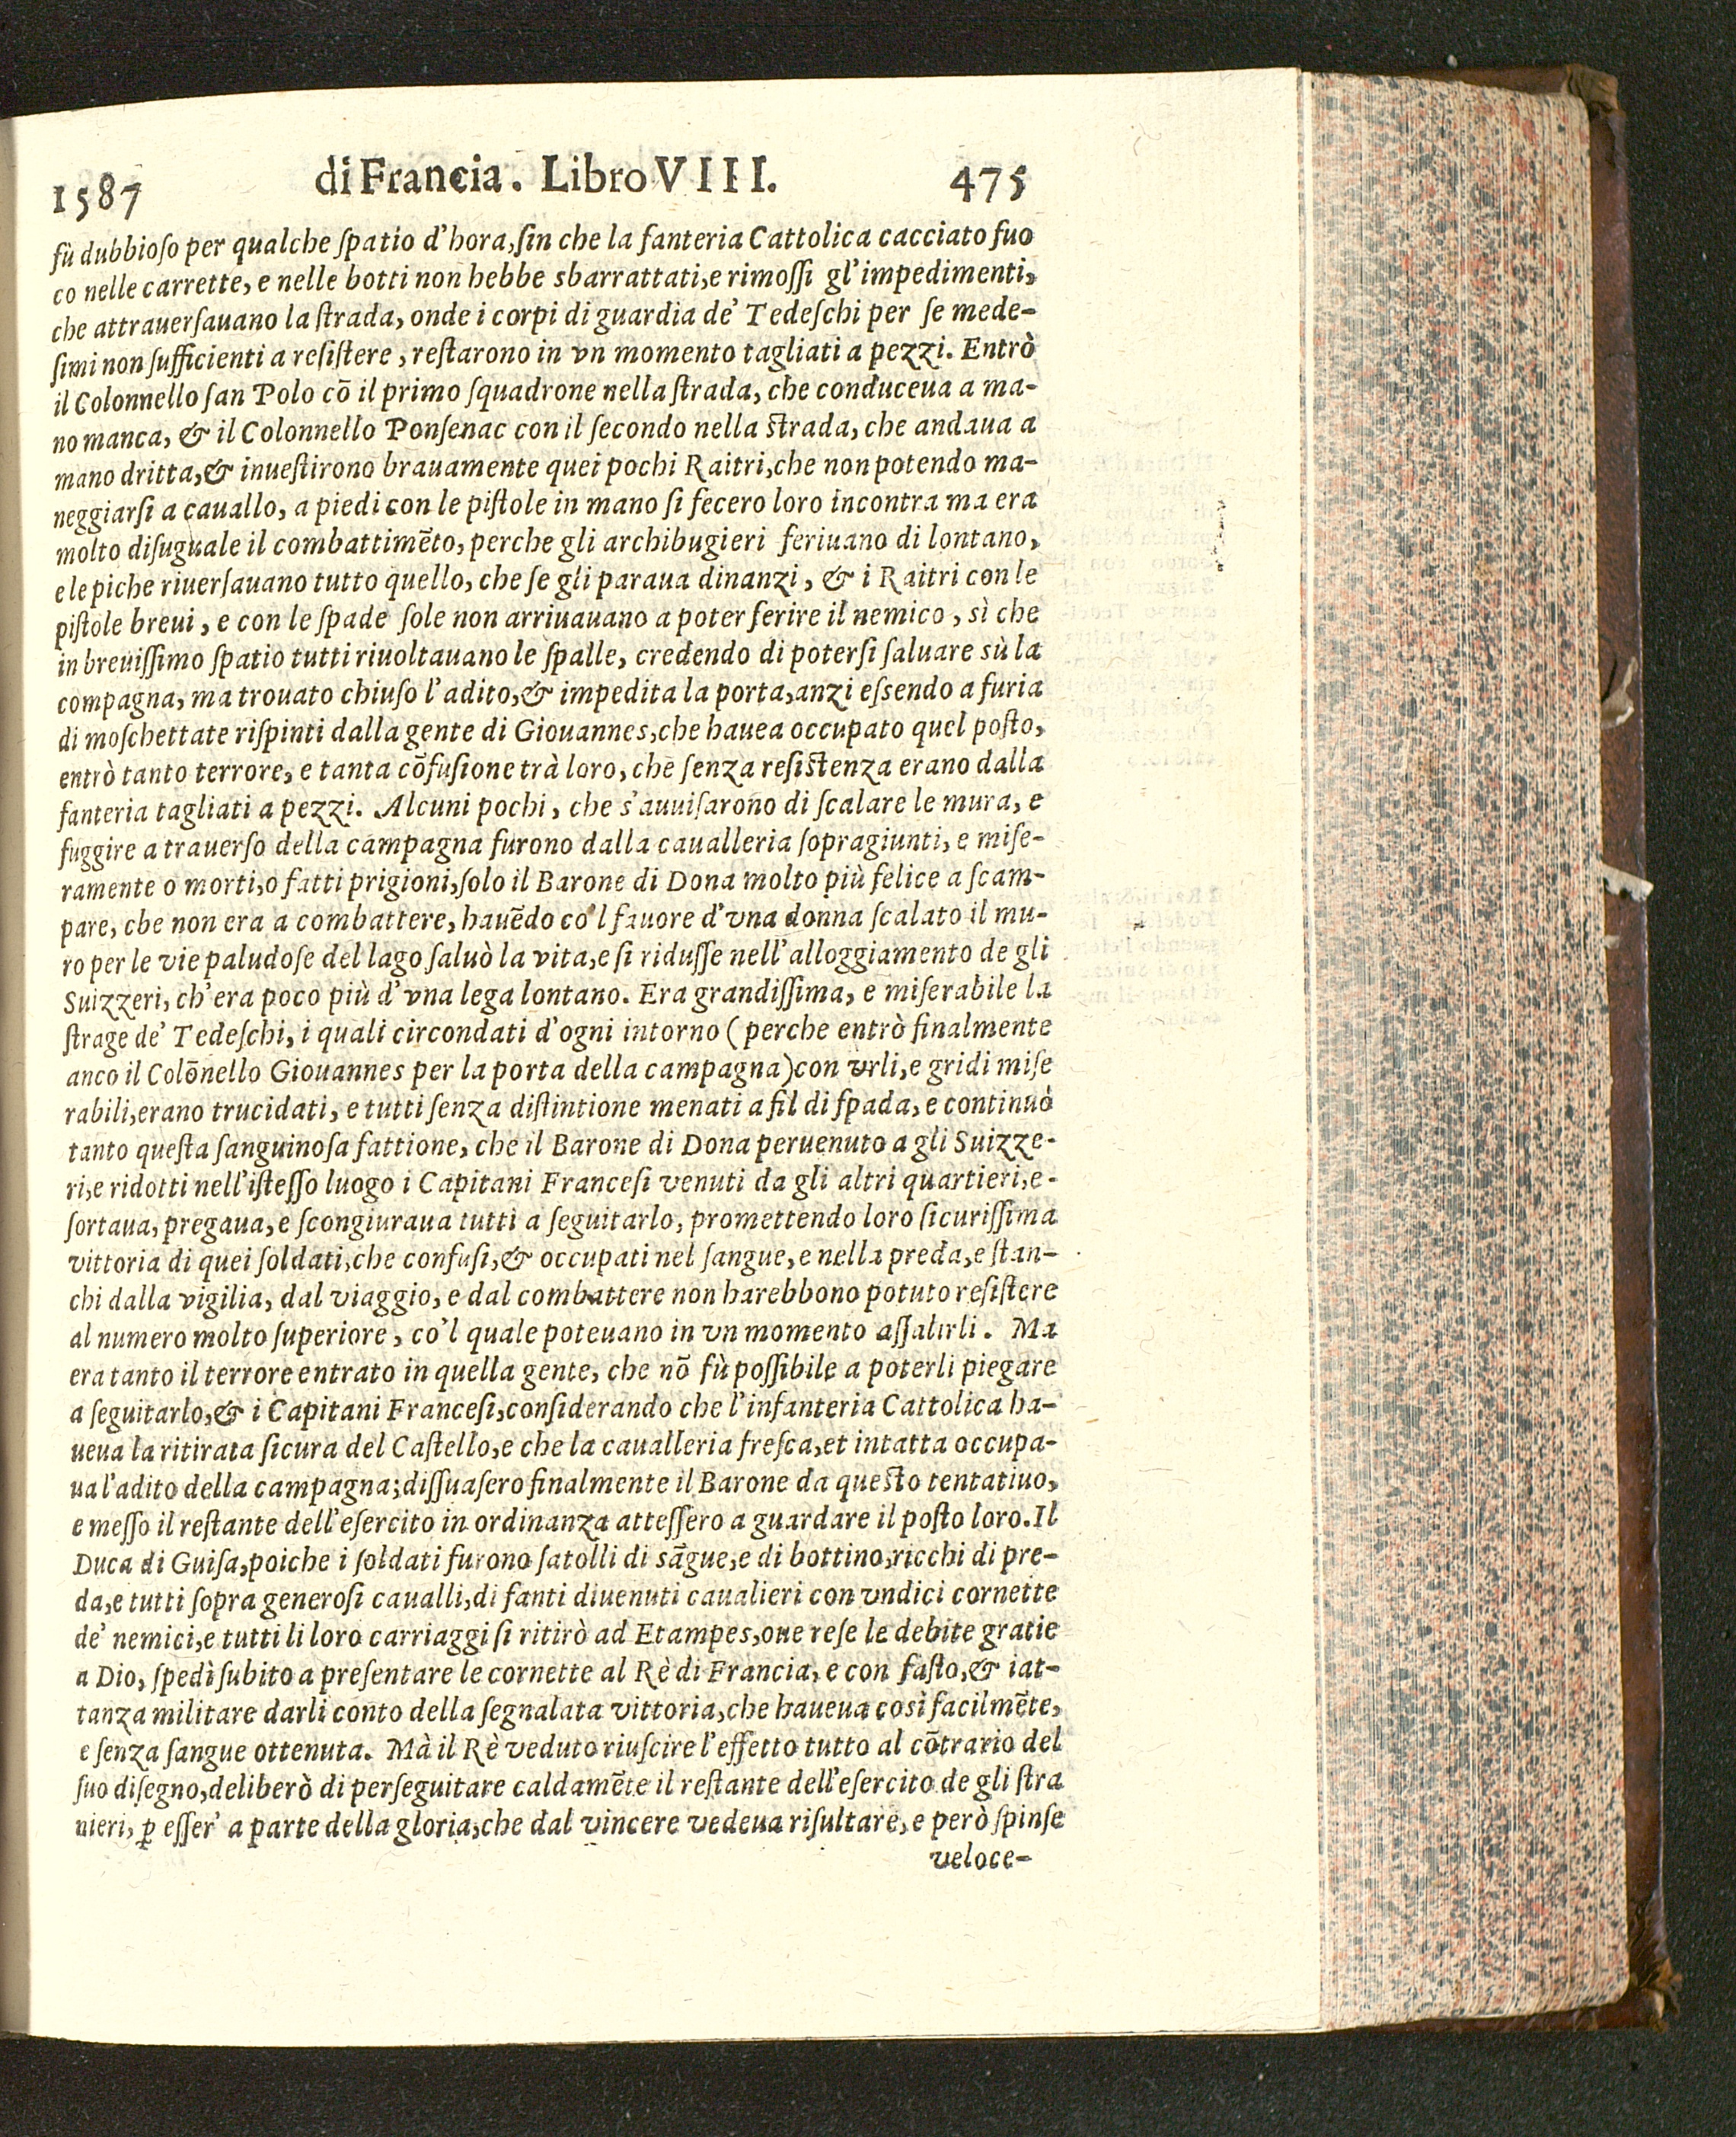 1587 di Francia. Libro VIII. 475
fù dubbioſo per qualche ſpatio d'hora, ſin che la fanteria Cattolica cacciato fuo
co nelle carrette, e nelle botti non hebbe sbarrattati, e rimoſſi gl'impedimenti,
che attrauerſauano la ſtrada, onde i corpi di guardia de' Tedeſchi per ſe mede-
ſimi non ſufficienti a reſiſtere, reſtarono in vn momento tagliati a pezzi. Entrò
il Colonnello ſan Polo cō il primo ſquadrone nella ſtrada, che conduceua a ma-
no manca, & il Colonnello Ponſenac con il ſecondo nella ſtrada, che andaua a
mano dritta, & inueſtirono brauamente quei pochi Raitri, che non potendo ma-
neggiarſi a cauallo, a piedi con le piſtole in mano ſi fecero loro incontra ma era
molto diſuguale il combattimēto, perche gli archibugieri feriuano di lontano,
e le piche riuerſauano tutto quello, che ſe gli paraua dinanzi, & i Raitri con le
piſtole breui, e con le ſpade ſole non arriuauano a poter ferire il nemico, sì che
in breuiſſimo ſpatio tutti riuoltauano le ſpalle, credendo di poterſi ſaluare sù la
compagna, ma trouato chiuſo l'adito, & impedita la porta, anzi eſsendo a furia
di moſchettate riſpinti dalla gente di Giouannes, che hauea occupato quel poſto,
entrò tanto terrore, e tanta cōfuſione trà loro, che ſenza reſiſtenza erano dalla
fanteria tagliati a pezzi. Alcuni pochi, che s'auuiſarono di ſcalare le mura, e
fuggire a trauerſo della campagna furono dalla caualleria ſopragiunti, e miſe-
ramente o morti, o fatti prigioni, ſolo il Barone di Dona molto più felice a ſcam-
pare, che non era a combattere, hauēdo co'l fauore d'vna donna ſcalato il mu-
ro per le vie paludoſe del lago ſaluò la vita, e ſi riduſſe nell'alloggiamento de gli
Suizzeri, ch'era poco più d'vna lega lontano. Era grandiſſima, e miſerabile la
ſtrage de' Tedeſchi, i quali circondati d'ogni intorno (perche entrò finalmente
anco il Colōnello Giouannes per la porta della campagna) con vrli, e gridi miſe
rabili, erano trucidati, e tutti ſenza diſtintione menati a fil di ſpada, e continuò
tanto queſta ſanguinoſa fattione, che il Barone di Dona peruenuto a gli Suizze-
ri, e ridotti nell'iſteſſo luogo i Capitani Franceſi venuti da gli altri quartieri, e-
ſortaua, pregaua, e ſcongiuraua tutti a ſeguitarlo, promettendo loro ſicuriſſima
vittoria di quei ſoldati, che confuſi, & occupati nel ſangue, e nella preda, e ſtan-
chi dalla vigilia, dal viaggio, e dal combattere non harebbono potuto reſiſtere
al numero molto ſuperiore, co'l quale poteuano in vn momento aſſalirli. Ma
era tanto il terrore entrato in quella gente, che nō fù poſſibile a poterli piegare
a ſeguitarlo, & i Capitani Franceſi, conſiderando che l'infanteria Cattolica ha-
ueua la ritirata ſicura del Caſtello, e che la caualleria freſca, et intatta occupa-
ua l'adito della campagna; diſſuaſero finalmente il Barone da queſto tentatiuo,
e meſſo il reſtante dell'eſercito in ordinanza atteſſero a guardare il poſto loro. Il
Duca di Guiſa, poiche i ſoldati furono ſatolli di sāgue, e di bottino, ricchi di pre-
da, e tutti ſopra generoſi caualli, di fanti diuenuti caualieri con vndici cornette
de' nemici, e tutti li loro carriaggi ſi ritirò ad Etampes, oue reſe le debite gratie
a Dio, ſpedì ſubito a preſentare le cornette al Rè di Francia, e con faſto, & iat-
tanza militare darli conto della ſegnalata vittoria, che haueua così facilmēte,
e ſenza ſangue ottenuta. Mà il Rè veduto riuſcire l'effetto tutto al cōtrario del
ſuo diſegno, deliberò di perſeguitare caldamēte il reſtante dell'eſercito de gli ſtra
nieri, ꝑ eſſer' a parte della gloria, che dal vincere vedeua riſultare, e però ſpinſe
veloce-